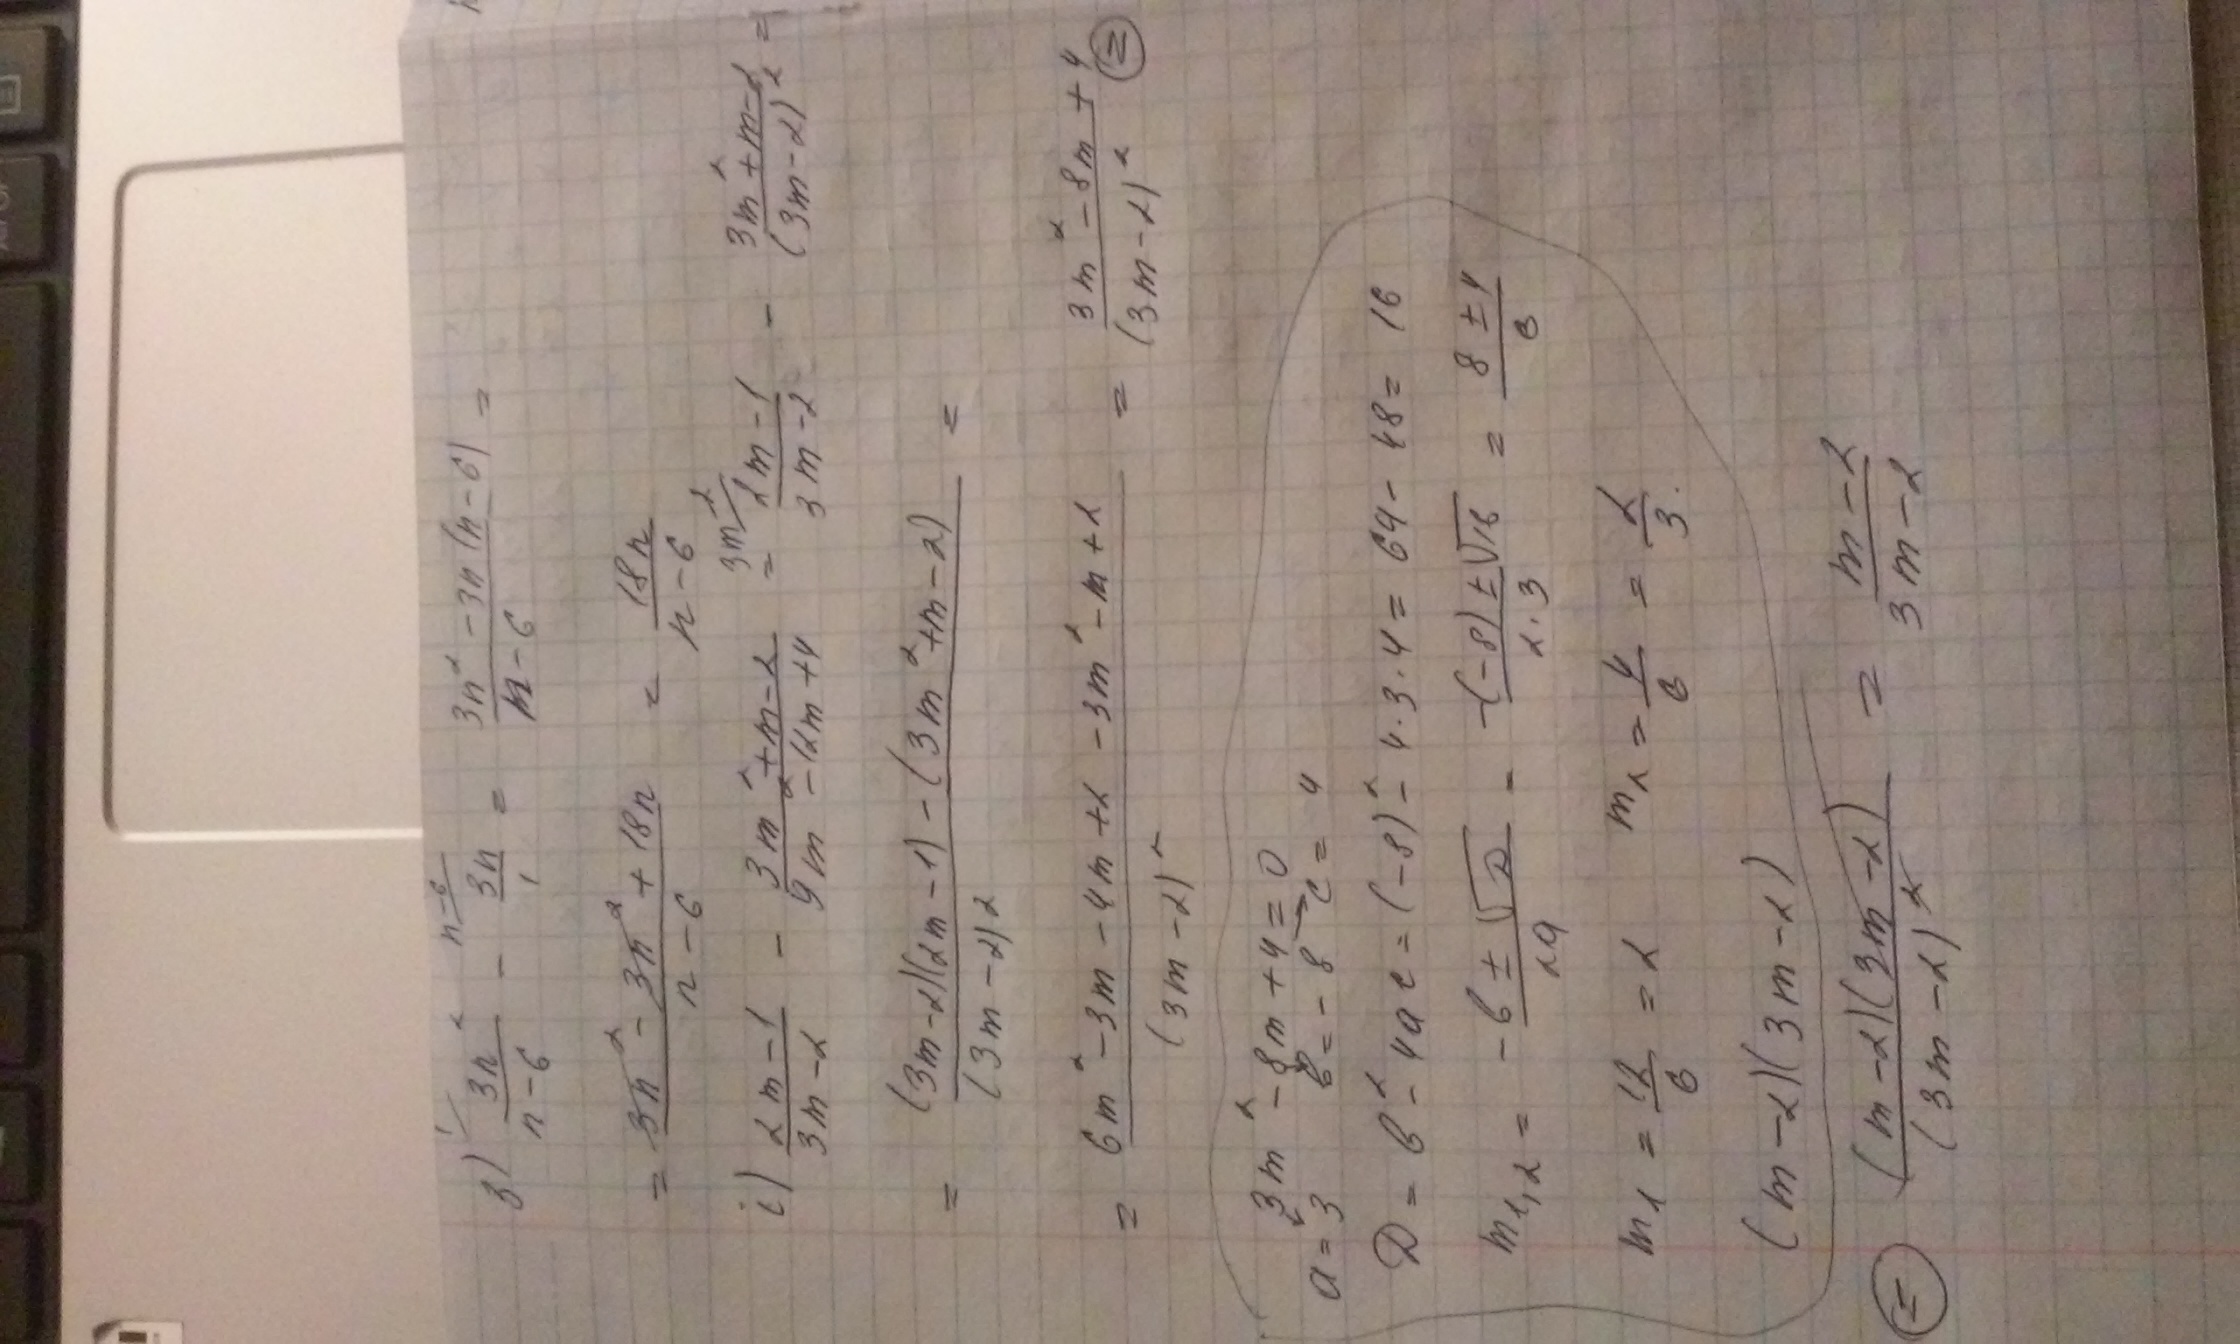 з) 3n²/(n-6) - 3n/1 = (3n² - 3n(n-6))/(n-6) =
= (3n² - 3n² + 18n)/(n-6) = 18n/(n-6)
і) (2m-1)/(3m-2) - (3m²+m-2)/(9m²-12m+4) = (2m-1)/(3m-2) - (3m²+m-2)/(3m-2)² =
= ((3m-2)(2m-1) - (3m²+m-2))/(3m-2)² =
= (6m² - 3m - 4m + 2 - 3m² - m + 2)/(3m-2)² = (3m² - 8m + 4)/(3m-2)² ⊜
3m² - 8m + 4 = 0
a = 3 в = -8 c = 4
D = в² - 4ac = (-8)² - 4·3·4 = 64 - 48 = 16
m1,2 = (-в ± √D)/2a = (-(-8) ± √16)/2·3 = (8 ± 4)/6
m1 = 12/6 = 2 m2 = 4/6 = 2/3.
(m-2)(3m-2)
⊜ ((m-2)(3m-2))/(3m-2)² = (m-2)/(3m-2)